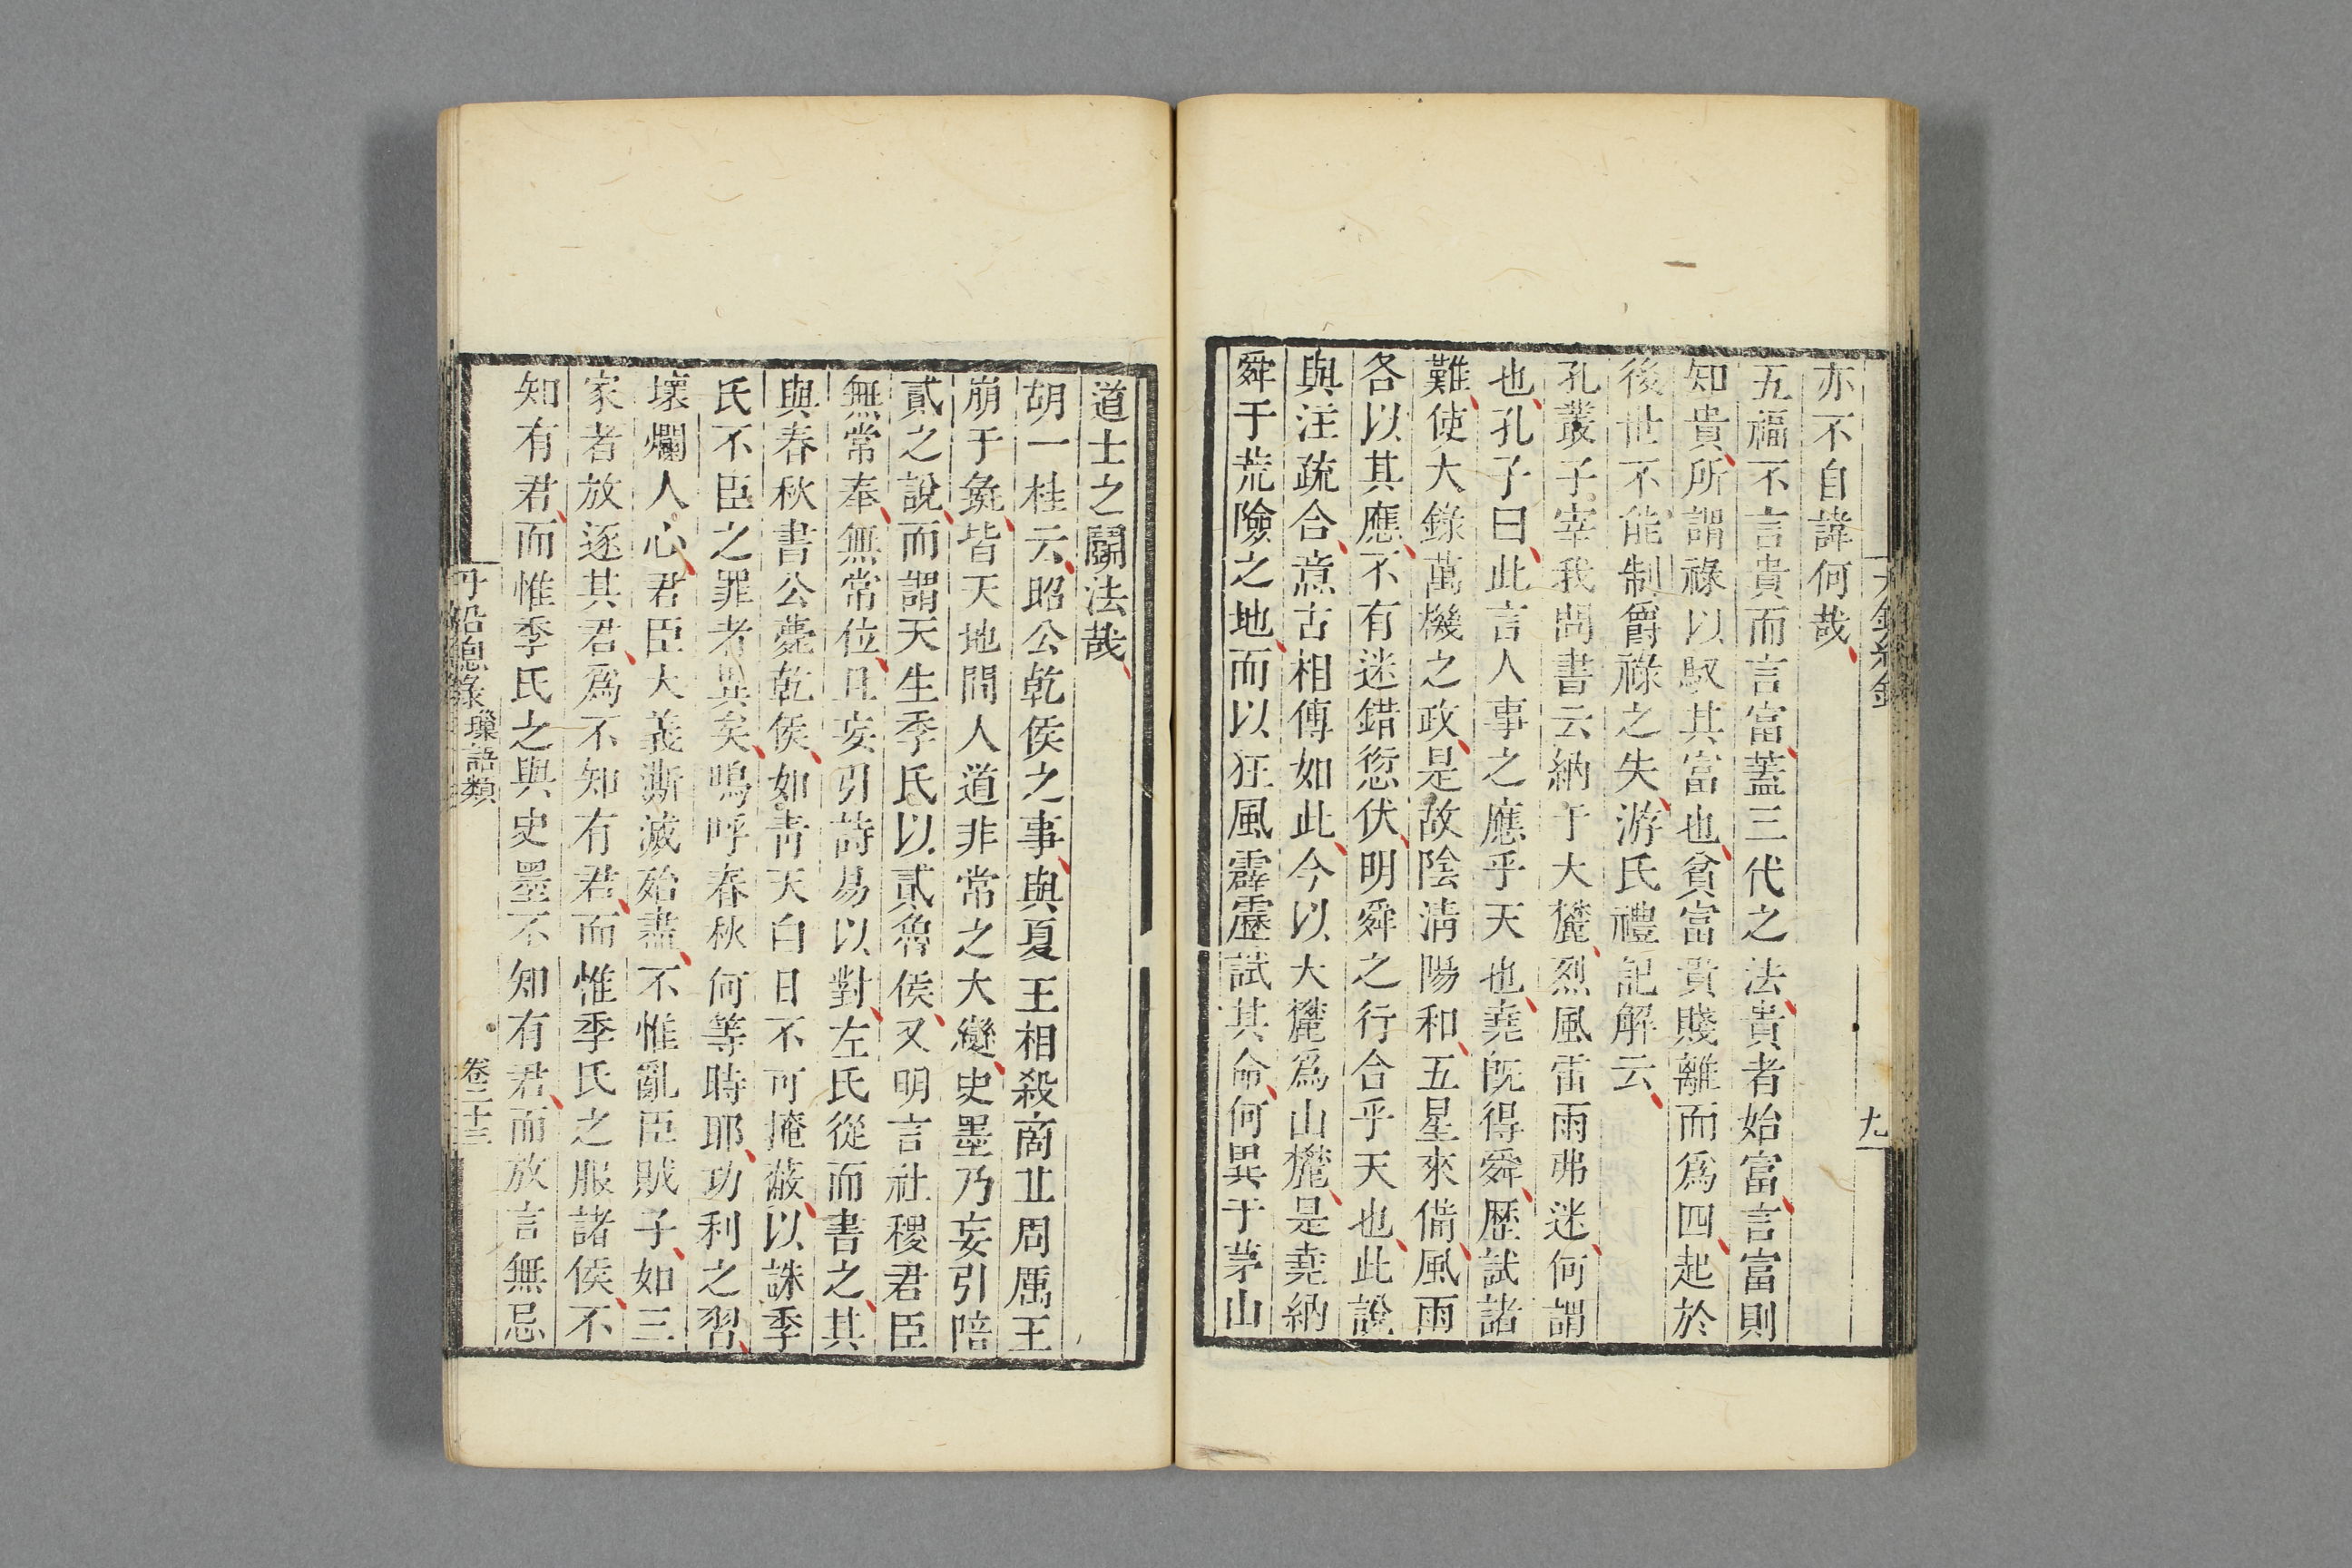 亦不自諱何哉
五福不言貴而言富蓋三代之法貴者始富言富則
知貴所謂祿以馭其富也貧富貴賤離而爲四起於
後世不能制爵祿之失游氏禮記解云
孔叢子宰我問書云納于大麓烈風雷雨弗迷何謂
也孔子曰此言人事之應乎天也堯旣得舜歷試諸
難使大錄萬機之政是故陰淸陽和五星來備風雨
各以其應不有迷錯愆伏明舜之行合乎天也此說
與注疏合意古相傳如此今以大麓爲山麓是堯納
舜于荒險之地而以狂風霹靂試其命何異于茅山
道士之鬬法哉
胡一桂云昭公乾侯之事與夏王相殺商王周厲王
崩于彘皆天地間人道非常之大變史墨乃妄引陪
貳之說而謂天生季氏以貳魯侯又明言社稷君臣
無常奉無常位且妄引詩易以對左氏從而書之其
與春秋書公薨乾侯如靑天白日不可掩蔽以誅季
氏不臣之罪者異矣嗚呼春秋何等時耶功利之習
壞爛人心君臣大義澌滅殆盡不惟亂臣賊子如三
家者放逐其君爲不知有君而惟季氏之服諸侯不
知有君而惟季氏之與史墨不知有君而放言無忌
丹鉛總錄 瑣語類 卷二十三
九